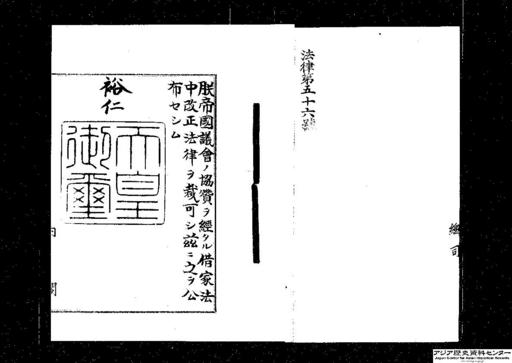 法律第五十六號
総司
朕帝國議會ノ協賛ヲ經タル借家法
中改正法律ヲ裁可シ茲ニ之ヲ公
布セシム
裕仁
天皇
御璽
内閣
アジア歴史資料センター
Japan Center for Asian Historical Records